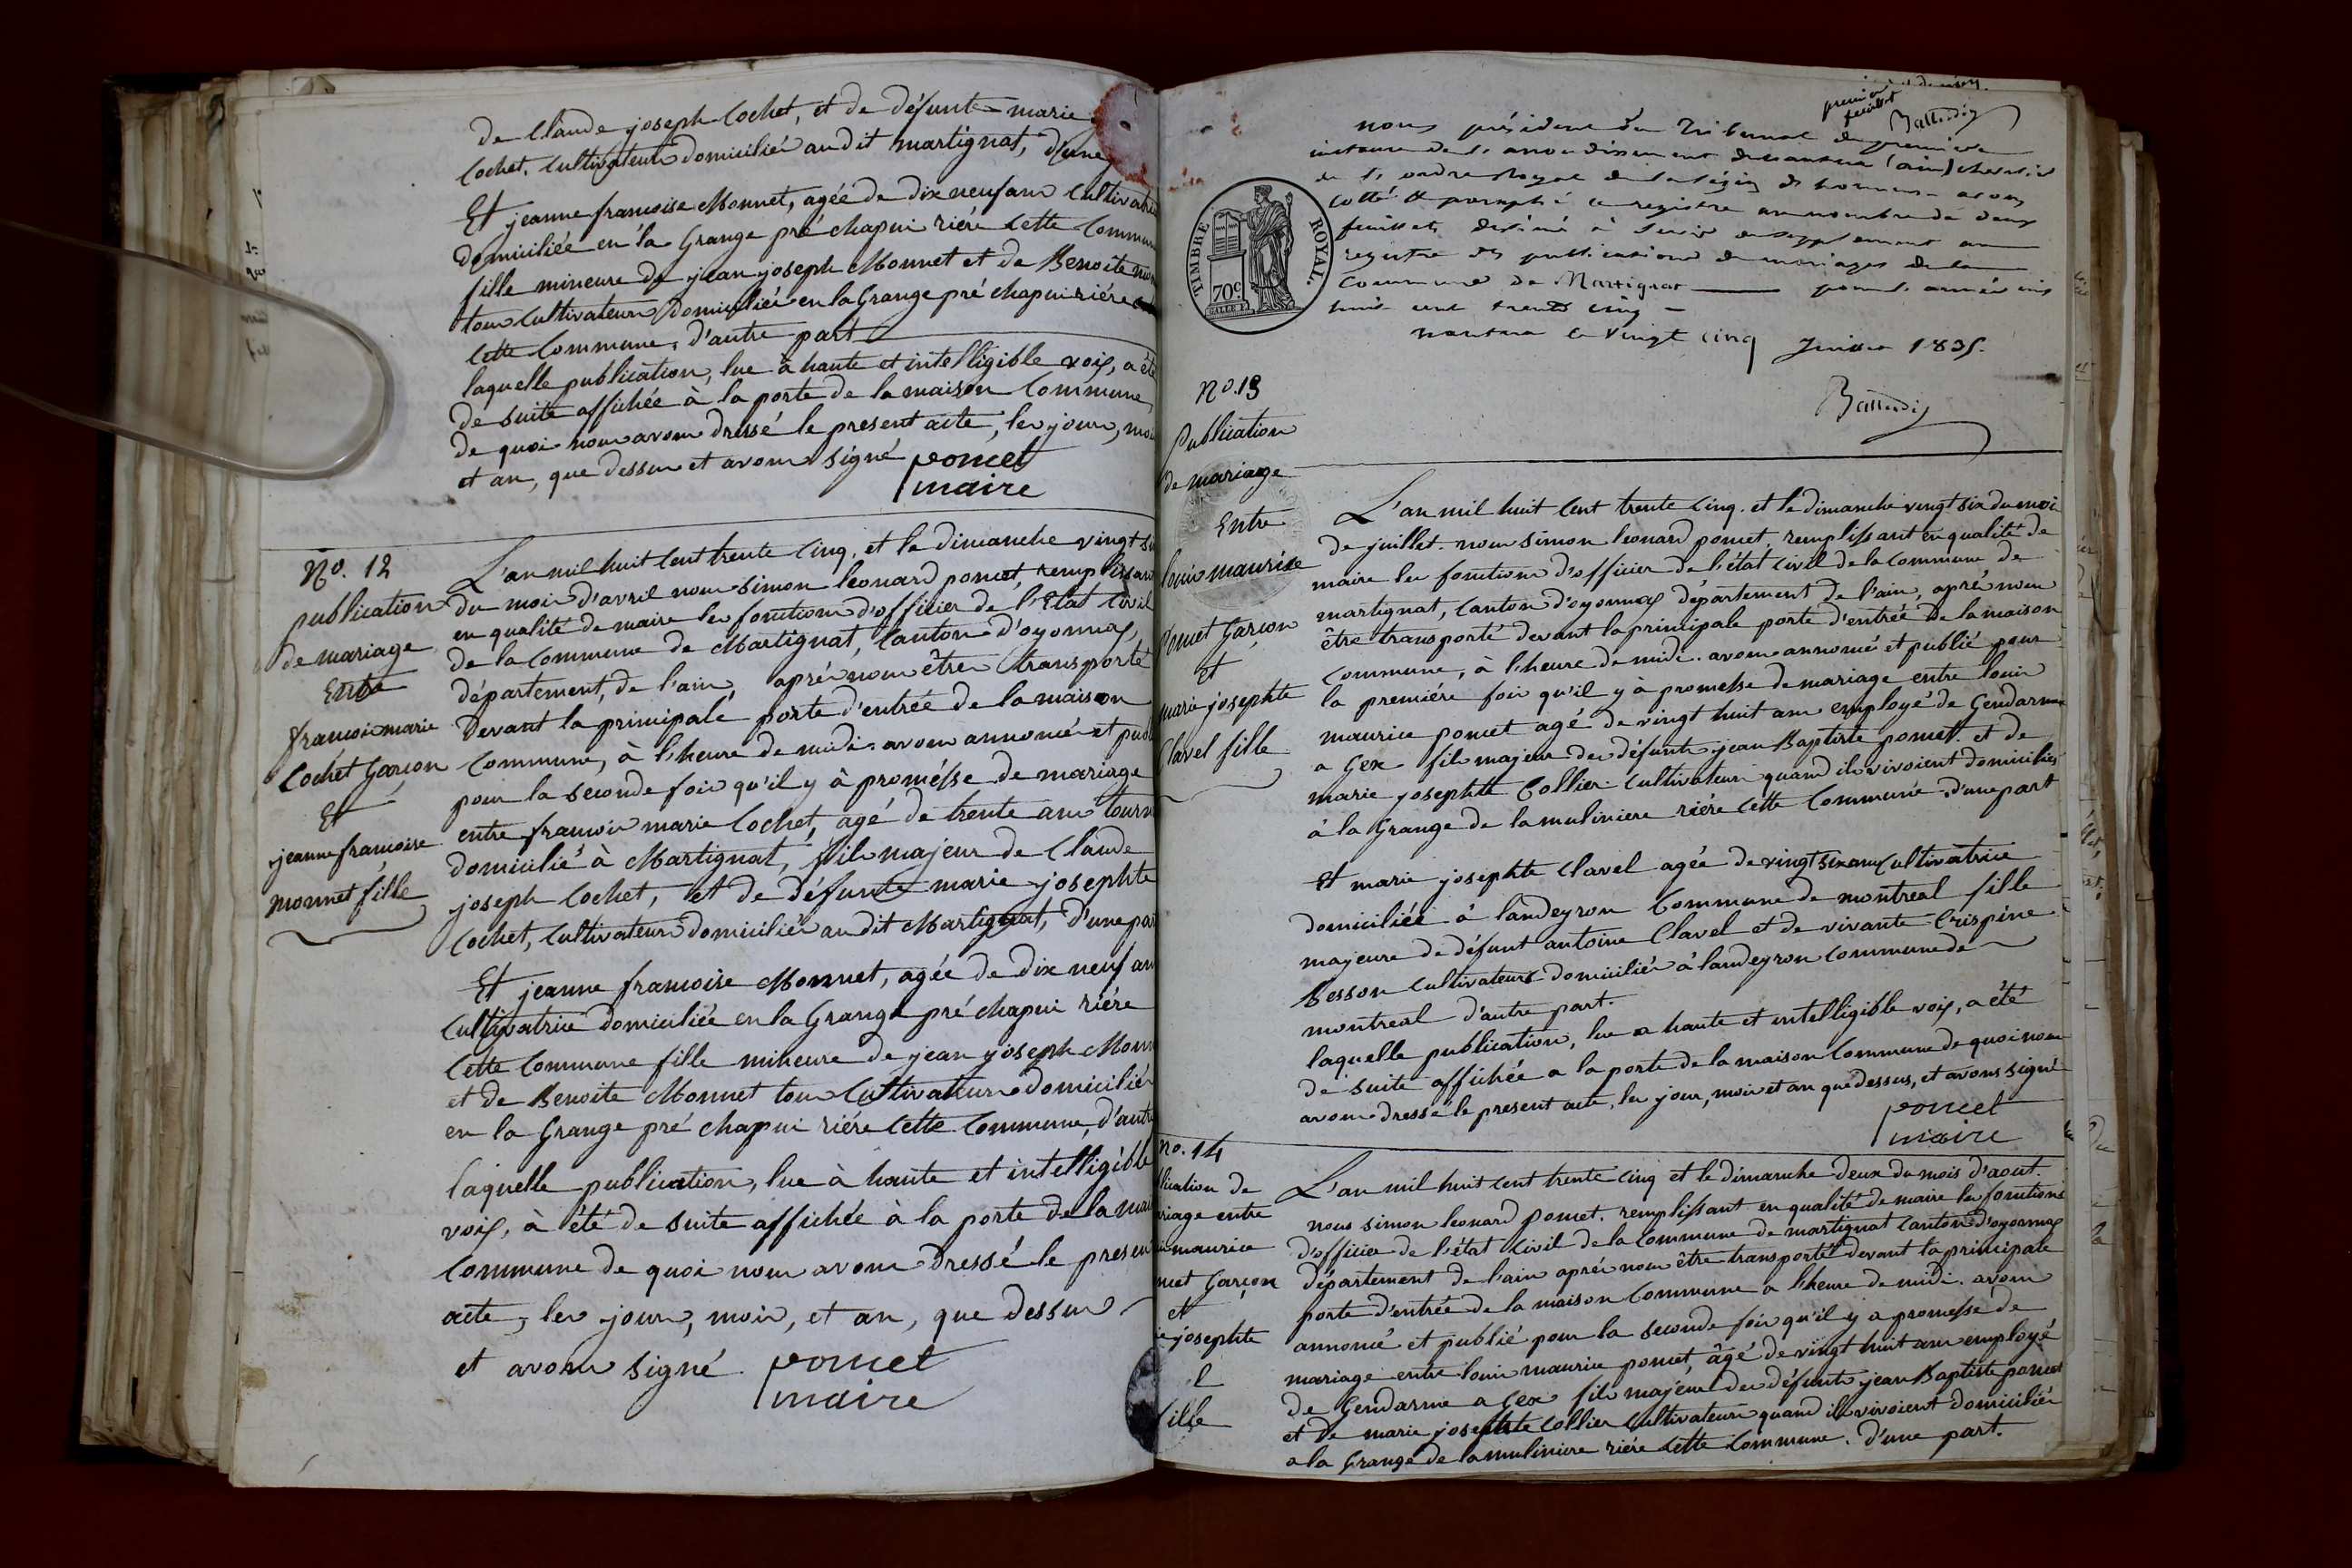 de Claude joseph Cochet, et de défunte marie
Cochet. Cultivateurs domiciliés audit martignat, d'une
Et jeanne francoise Monnet, agée de dix neuf ans Cultivatrice
domiciliée en la Grange pré chapui riére cette Commune
fille mineure de jean joseph Monnet et de Benoite
tous Cultivateurs Domiciliés en la Grange pré chapui riére
cette Commune, d'autre part
laquelle publication, lue à haute et intelligible voix, a été
de suite affichée à la porte de la maison Commune,
de quoi nous avons dressé le present acte, les jour, mois
et an, que dessus et avons signé poncet
maire
No. 12
publication
de mariage
Entre
francois marie
Cochet Garçon
Et
jeanne francoise
monnet fille
L'an mil huit Cent trente Cinq, et le dimanche vingt six
du mois d'avril nous simon leonard poncet, remplissant
en qualité de maire les fonctions d'officier de l'Etat Civil
de la Commune de Martignat, Canton d'oyonnax,
département, de l'ain, aprés nous être transporté
Devant la principale porte d'entrée de la maison
Commune, à l'heure de midi. avons annoncé et publié
pour la seconde fois qu'il y à promésse de mariage
entre francois marie Cochet, agé de trente ans
domicilié à Martignat, fils majeur de Claude
joseph Cochet, et de défunte marie josephte
Cochet, Cultivateurs domiciliés audit Martignat, d'une part
Et jeanne francoise Monnet, agée de dix neuf ans
Cultivatrice domiciliée en la Grange pré chapui riére
Cette Commune fille mineure de jean joseph Monnet
et de Benoite Monnet tous Cultivateurs domiciliés
en la Grange pré chapui riére Cette Commune, d'autre
laquelle publication, lue à haute et intelligible
voix, à été de suite affichée à la porte de la maison
Commune de quoi nous avons dressé le present
acte, les jour, mois, et an, que dessus
et avons signé. poncet
maire
premier
feuillet
nous président du Tribunal de première
instance de l'arrondissement de nantua (ain) chevalier
de l'ordre Royal de la légion d'honneur avons
cotté et paraphé ce registre au nombre de deux
feuillets destiné à servir de supplement au
registre des publications de mariages de la
Commune de Martignat pour l'année mil
huit cent trente cinq
nantua le vingt cinq Juillet 1835.
TIMBRE ROYAL.
70c
No. 13
Publication
de mariage
Entre
louis maurice
Poncet Garçon
et
marie josephte
Clavel fille
L'an mil huit Cent trente Cinq. et le dimanche vingt six du mois
de juillet. nous simon leonard poncet. remplissant en qualité de
maire les fonctions d'officier de l'état civil de la Commune de
martignat, Canton d'oyonnax département de l'ain, aprés nous
être transporté devant la principale porte d'entrée de la maison
Commune, à l'heure de midi. avons annoncé et publié pour
la première fois qu'il y à promesse de mariage entre louis
maurice poncet agé de vingt huit ans employé de Gendarme
a Gex fils majeur des défunts jean Baptiste poncet. et de
marie josephte Collier Cultivateurs quand ils vivoient domiciliés
à la Grange de la muliniere riére Cette Commune. d'une part
Et marie josephte Clavel agée de vingt six ans Cultivatrice
domiciliée à landeyron Commune de montreal fille
majeure de défunt antoine Clavel et de vivante Crispine
Besson Cultivateurs domiciliés à landeyron Commune de
montreal d'autre part.
laquelle publication, lue a haute et intelligible voix, a été
de suite affichée a la porte de la maison Commune de quoi nous
avons dressé le present acte, les jour, mois et an que dessus, et avons signé
poncet
maire
no. 14
lication de
riage entre
maurice
ncet Garçon
et
josephte
l
fille
L'an mil huit Cent trente Cinq et le dimanche deux du mois d'aout.
nous simon leonard Poncet. remplissant en qualité de maire les fonctions
d'officier de l'état Civil de la Commune de martignat Canton d'oyonnax
département de l'ain aprés nous être transporté devant la principale
porte d'entrée de la maison Commune a l'heure de midi. avons
annoncé et publié pour la seconde fois qu'il y a promesse de
mariage entre louis maurice poncet, âgé de vingt huit ans employé
de Gendarme a Gex fils majeur des défunts jean Baptiste poncet
et de marie josephte Collier Cultivateurs quand ils vivoient domiciliés
a la Grange de la muliniere riére Cette Commune. d'une part.